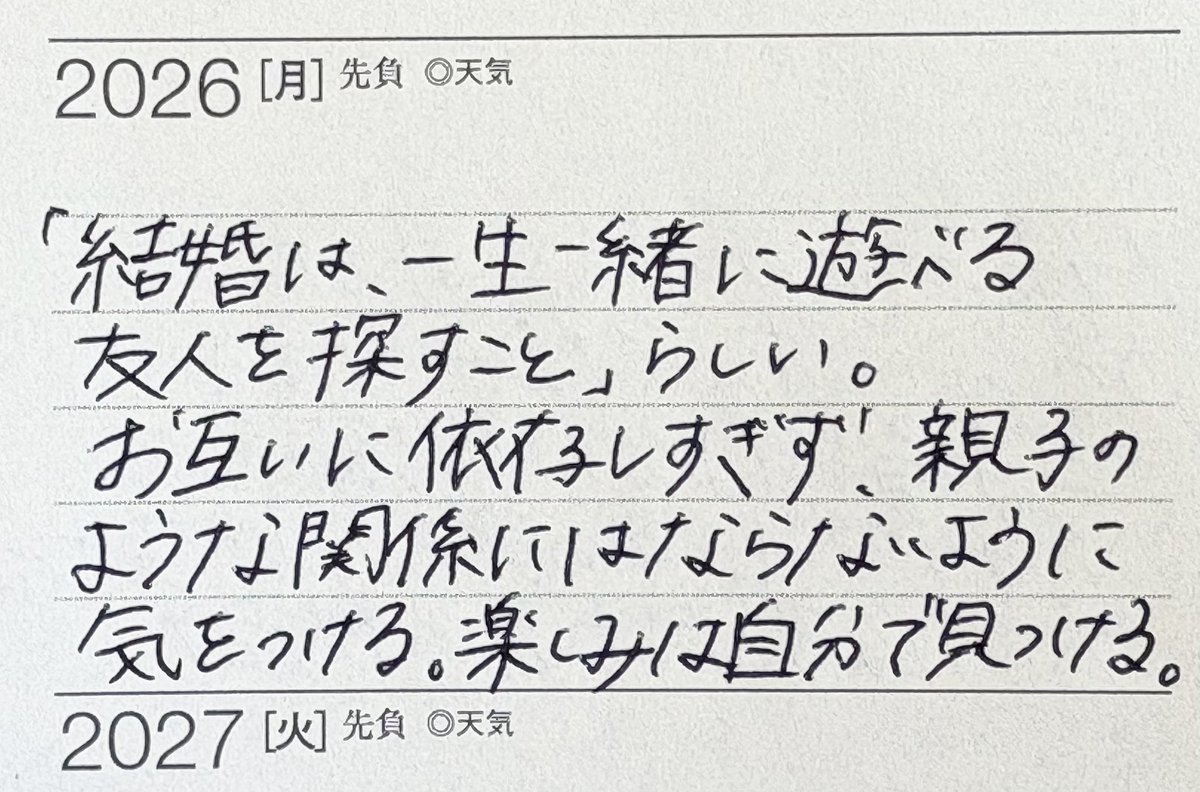 2026 [月] 先負 ◎天気
「結婚は、一生一緒に遊べる
友人を探すこと」らしい。
お互いに依存しすぎず、親子の
ような関係にはならないように
気をつける。楽しみは自分で見つける。
2027 [火] 先負 ◎天気